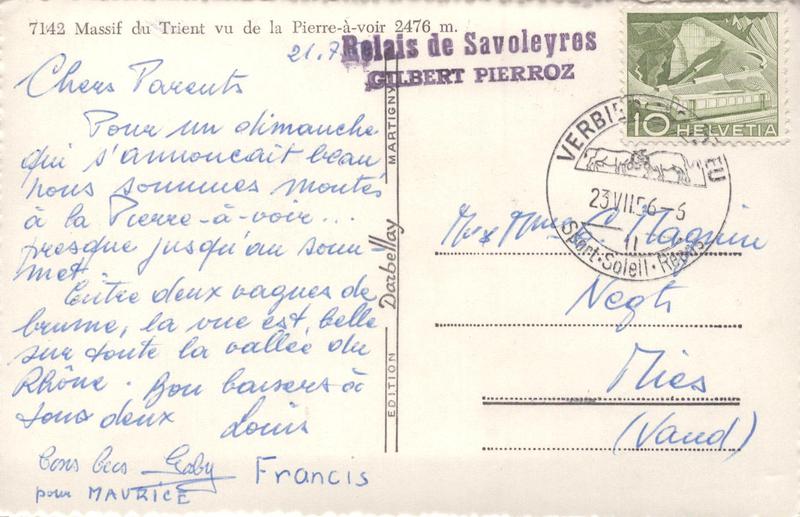 7142 Massif du Trient vu de la Pierre-à-voir 2476 m.
21.7
Relais de Savoleyres
GILBERT PIERROZ
Chers Parents
Pour un dimanche
qui s'annonçait beau
nous sommes montés
à la Pierre-à-voir...
presque jusqu'au som-
met.
Entre deux vagues de
brume, la vue est belle
sur toute la vallée du
Rhône. Bon baisers à
tous deux Louis
bons becs Gaby Francis
pour MAURICE
EDITION Darbellay MARTIGNY
10 HELVETIA
VERBIER
23.VII.56-6
11
Sport·Soleil·Repos
Mr & Mme Magnin
Negt
Mies
(Vaud)